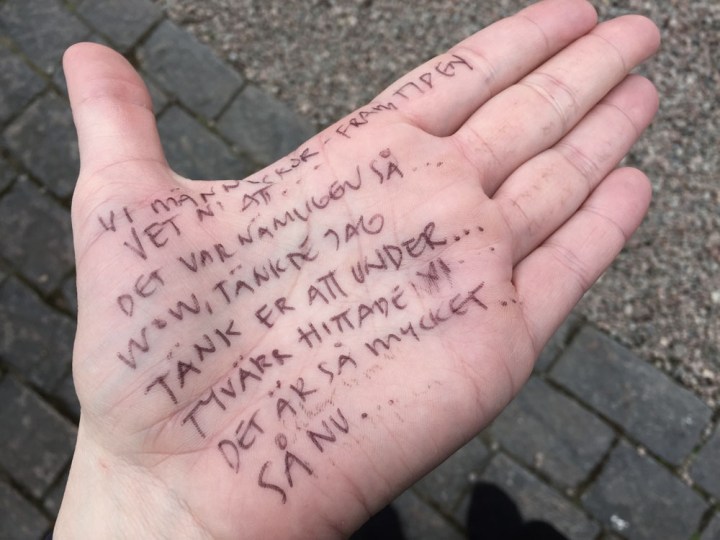 VI MÄNNISKOR - FRAMTIDEN
VET NI ATT...
DET VAR NÄMLIGEN SÅ...
WOW, TÄNKTE JAG
TÄNK ER ATT UNDER...
TYVÄRR HITTADE VI...
DET ÄR SÅ MYCKET...
SÅ NU...